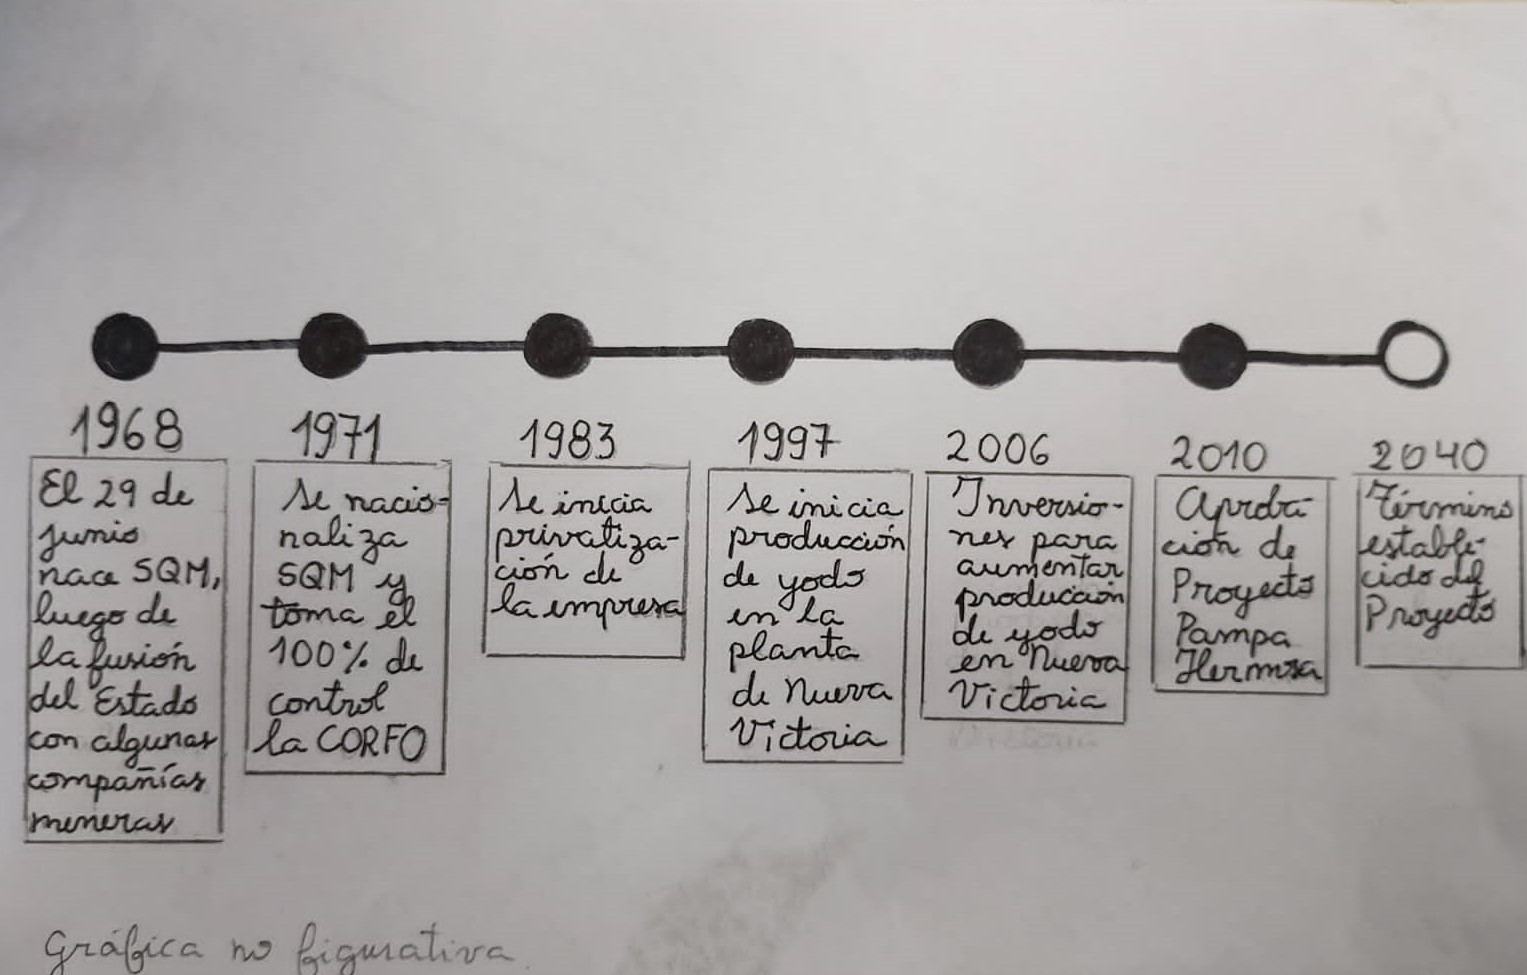 1968
El 29 de
junio
nace SQM,
luego de
la fusión
del Estado
con algunas
compañías
mineras
1971
Se nacio-
naliza
SQM y
toma el
100% de
control
la CORFO
1983
Se inicia
privatiza-
ción de
la empresa
1997
Se inicia
producción
de yodo
en la
planta
de Nueva
Victoria
2006
Inversio-
nes para
aumentar
producción
de yodo
en Nueva
Victoria
2010
Aproba-
ción de
Proyecto
Pampa
Hermosa
2040
Término
estable-
cido del
Proyecto
Gráfica no figurativa